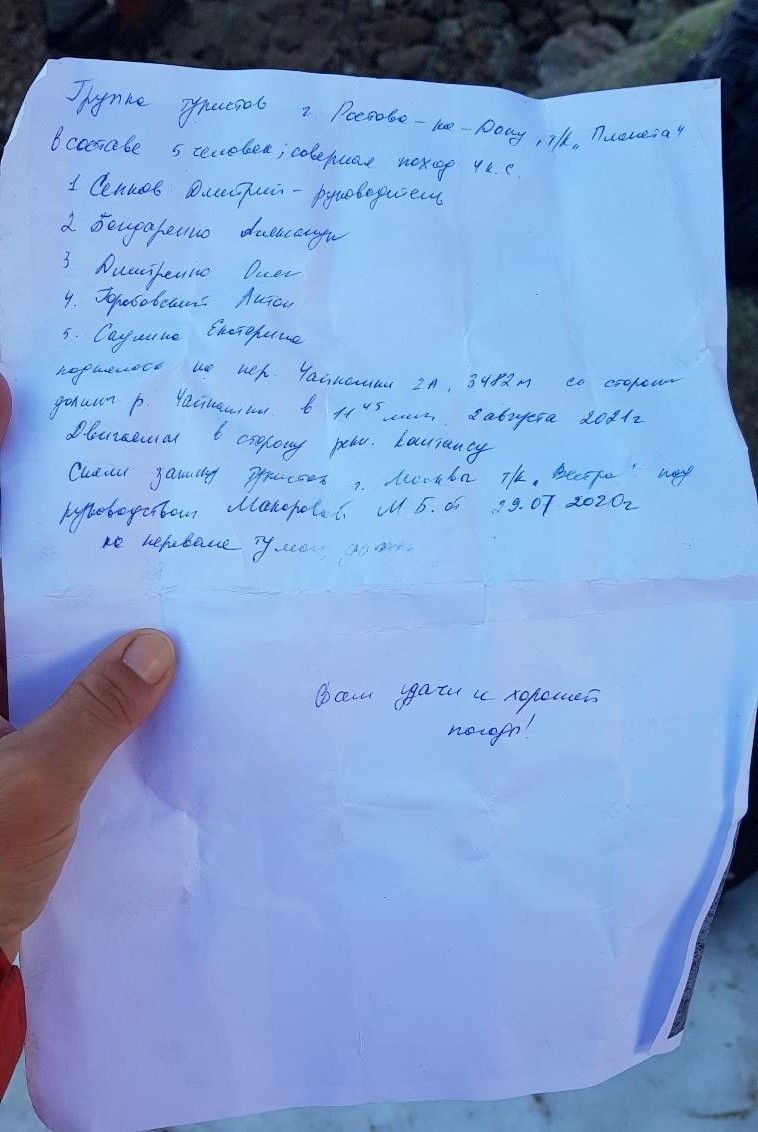 Группа туристов г. Ростова-на-Дону, т/к „Планета"
в составе 5 человек, совершая поход 4 к.с.
1 Сенков Дмитрий - руководитель
2 Бондаренко Александр
3. Дмитренко Олег
4. Горбовский Антон
5. Саулина Екатерина
поднялась на пер. Чайнашки 2А, 3482м со стороны
долины р. Чайнашки в 11 45 мин. 2 августа 2021г
Двигаемся в сторону
Сняли записку туристов г. Москвы т/к „Вестра" под
руководством Макоровой М.Б. от 29.07 2020г
на перевале туман, дождь
Вам удачи и хорошей
погоды!